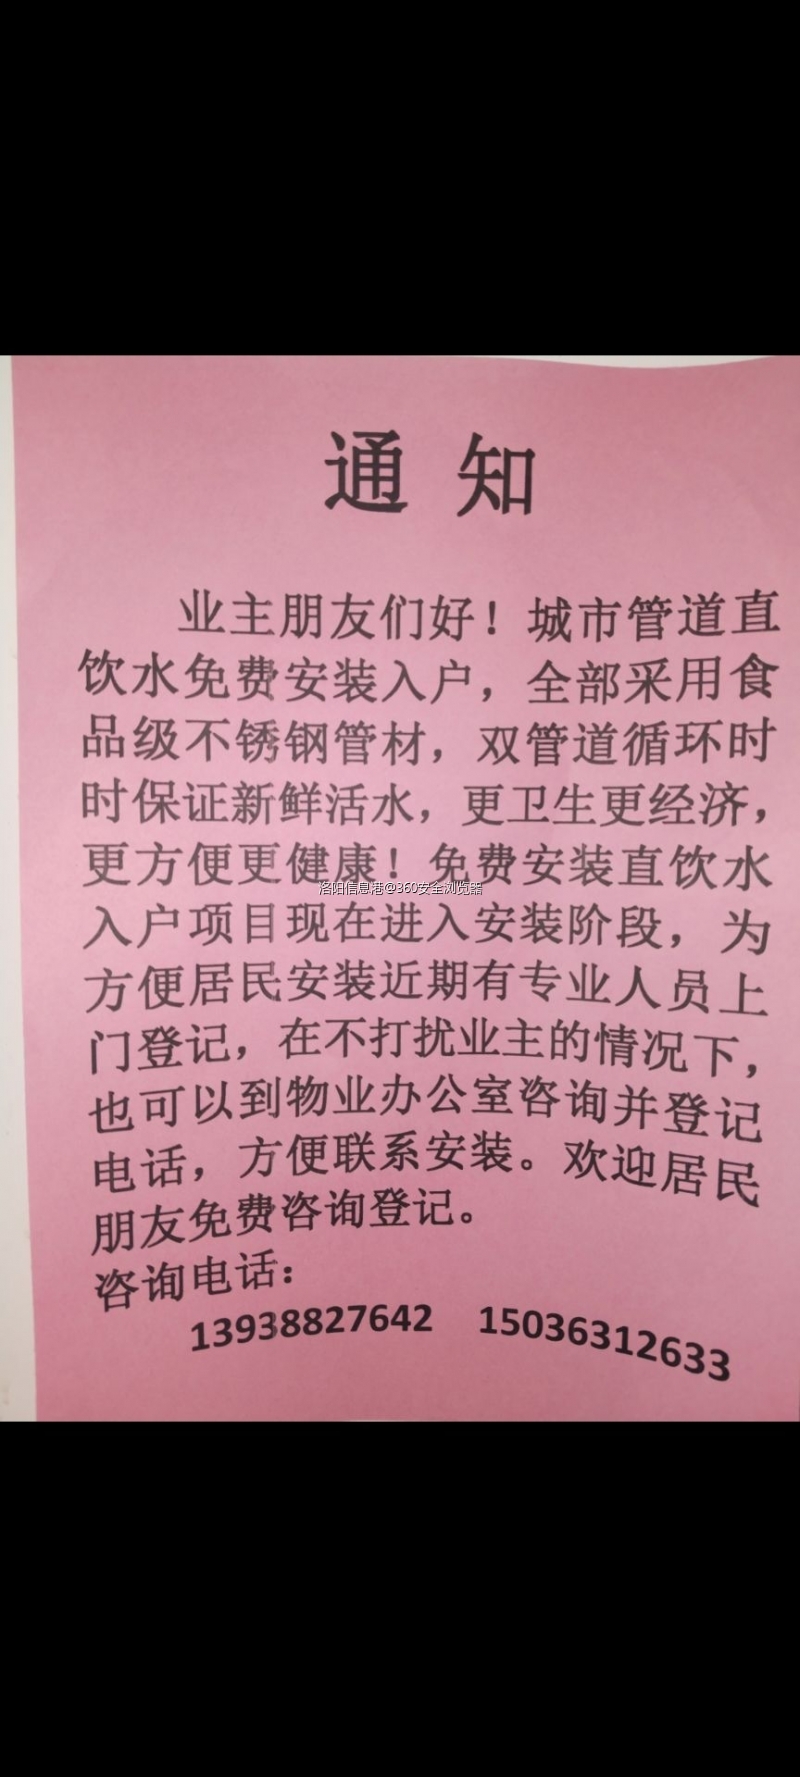 通知
业主朋友们好！城市管道直
饮水免费安装入户，全部采用食
品级不锈钢管材，双管道循环时
时保证新鲜活水，更卫生更经济，
更方便更健康！免费安装直饮水
洛阳信息港@360安全浏览器
入户项目现在进入安装阶段，为
方便居民安装近期有专业人员上
门登记，在不打扰业主的情况下，
也可以到物业办公室咨询并登记
电话，方便联系安装。欢迎居民
朋友免费咨询登记。
咨询电话：
13938827642 15036312633